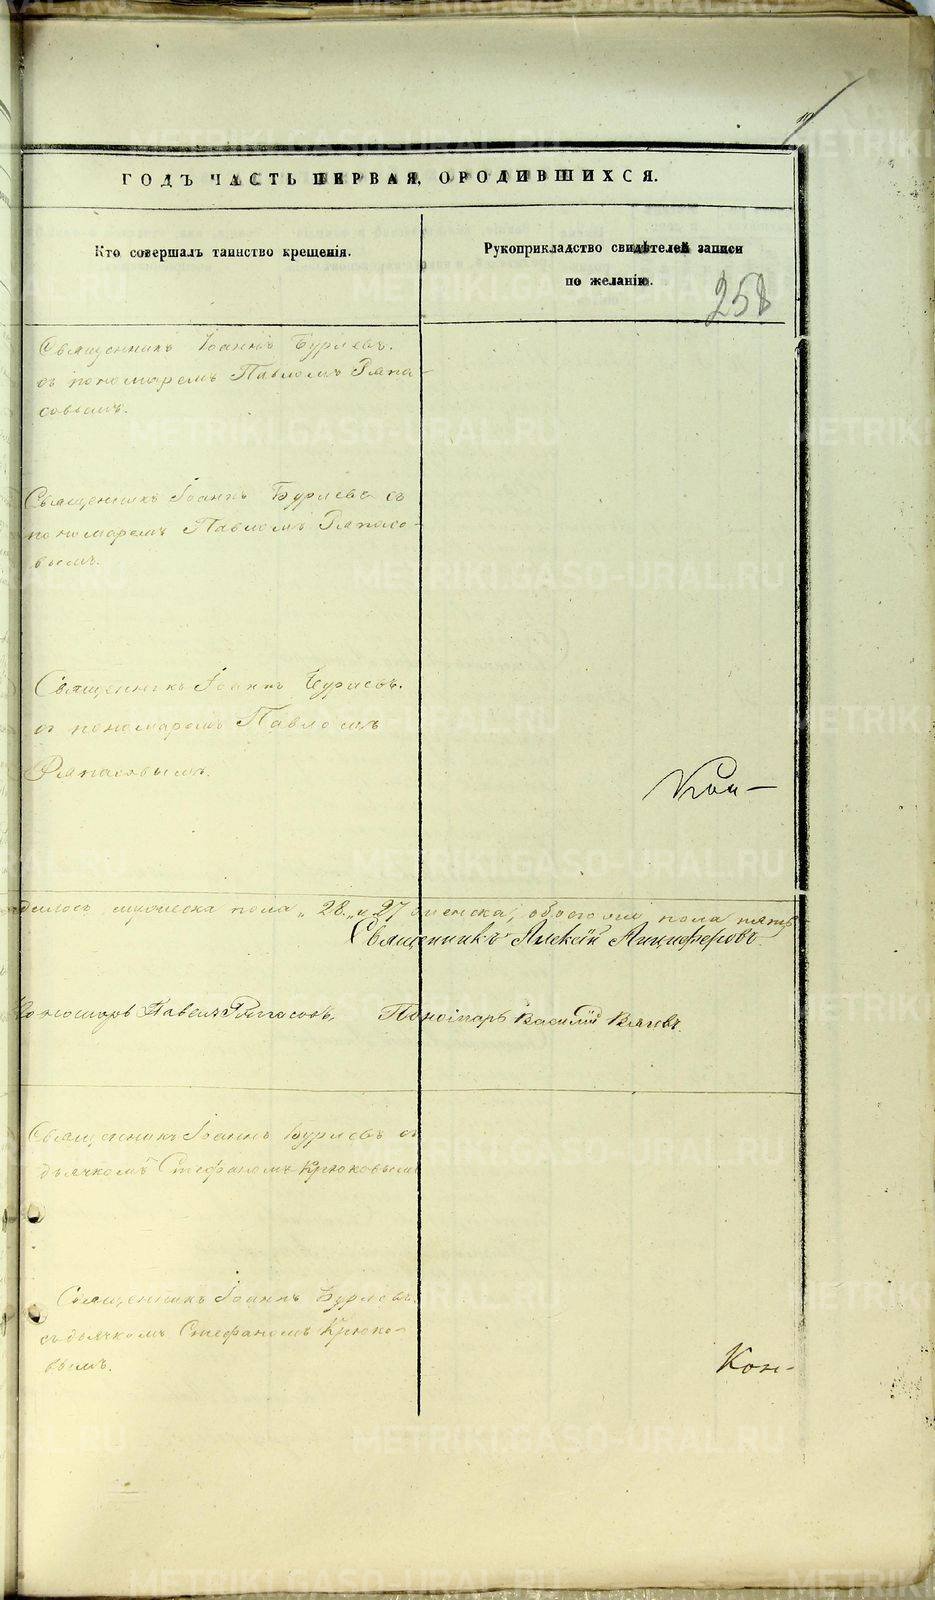 ГОДЪ ЧАСТЬ ПЕРВАЯ, О РОДИВШИХСЯ.
Кто совершалъ таинство крещенія.
Рукоприкладство свидѣтелей записи
по желанію.
258
Священникъ Іоаннъ Бурлевъ.
съ пономаремъ Павломъ Ряпа-
совымъ.
Священникъ Іоаннъ Бурлевъ съ
пономаремъ Павломъ Ряпасо-
вымъ.
Священникъ Іоаннъ Бурлевъ.
съ пономаремъ Павломъ
Ряпасовымъ.
мужеска пола „28„ и 27 женска, обоего пола
Священникъ Алексій Анциферовъ.
Пономарь Павелъ Ряпасовъ, Пономарь Василій
Священникъ Іоаннъ Бурлевъ съ
дьячкомъ Стефаномъ Крюковымъ
Священникъ Іоаннъ Бурлевъ
съ дьячкомъ Стефаномъ Крюко-
вымъ.
Кон-
METRIKI.GASO-URAL.RU